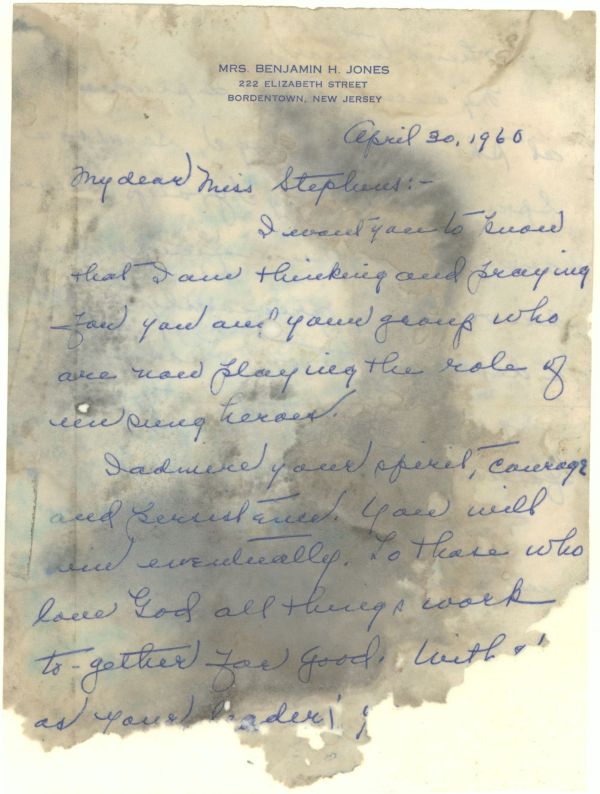 MRS. BENJAMIN H. JONES
222 ELIZABETH STREET
BORDENTOWN, NEW JERSEY
April 30, 1960
My dear Miss Stephens:-
I want you to know
that I am thinking and praying
for you and your group who
are now playing the role of
un sung heroes.
I admire your spirit, courage
and persistence. You will
win eventually. To those who
love God all things work
to-gether for good. With
as your leader